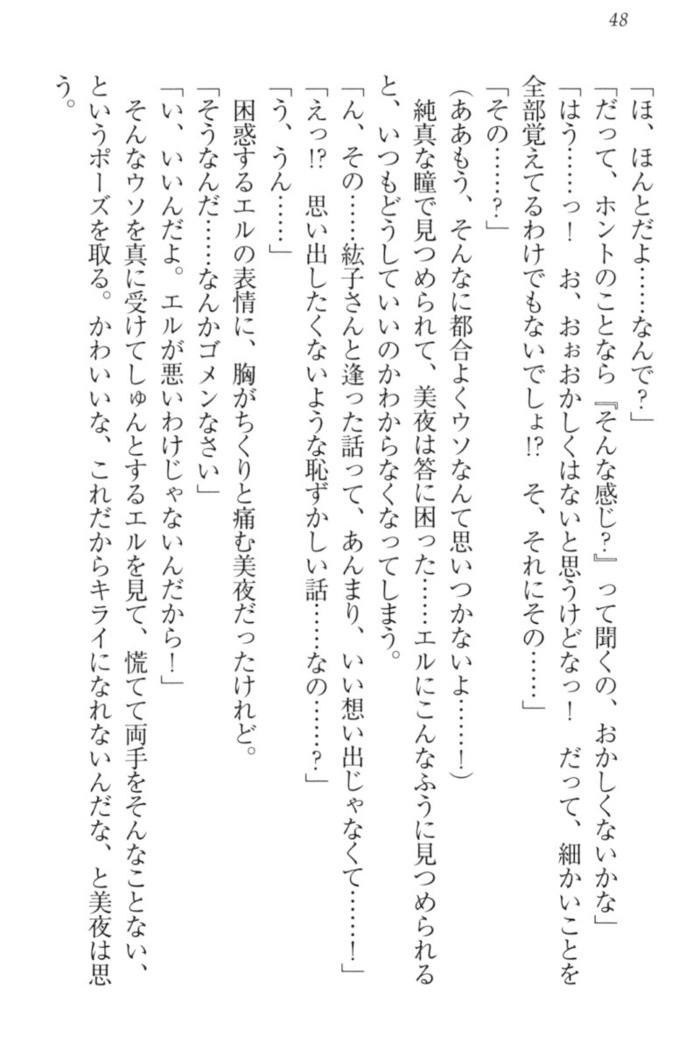 48
「ほ、ほんとだよ……なんで?」
「だって、ホントのことなら『そんな感じ?』って聞くの、おかしくないかな」
「はう……っ！　お、おぉおかしくはないと思うけどなっ！　だって、細かいことを
全部覚えてるわけでもないでしょ!?　そ、それにその……」
「その……?」
(ああもう、そんなに都合よくウソなんて思いつかないよ……！)
　純真な瞳で見つめられて、美夜は答に困った……エルにこんなふうに見つめられる
と、いつもどうしていいのかわからなくなってしまう。
「ん、その……紘子さんと逢った話って、あんまり、いい想い出じゃなくて……！」
「えっ!?　思い出したくないような恥ずかしい話……なの……?」
「う、うん……」
　困惑するエルの表情に、胸がちくりと痛む美夜だったけれど。
「そうなんだ……なんかゴメンなさい」
「い、いいんだよ。エルが悪いわけじゃないんだから！」
　そんなウソを真に受けてしゅんとするエルを見て、慌てて両手をそんなことない、
というポーズを取る。かわいいな、これだからキライになれないんだな、と美夜は思
う。